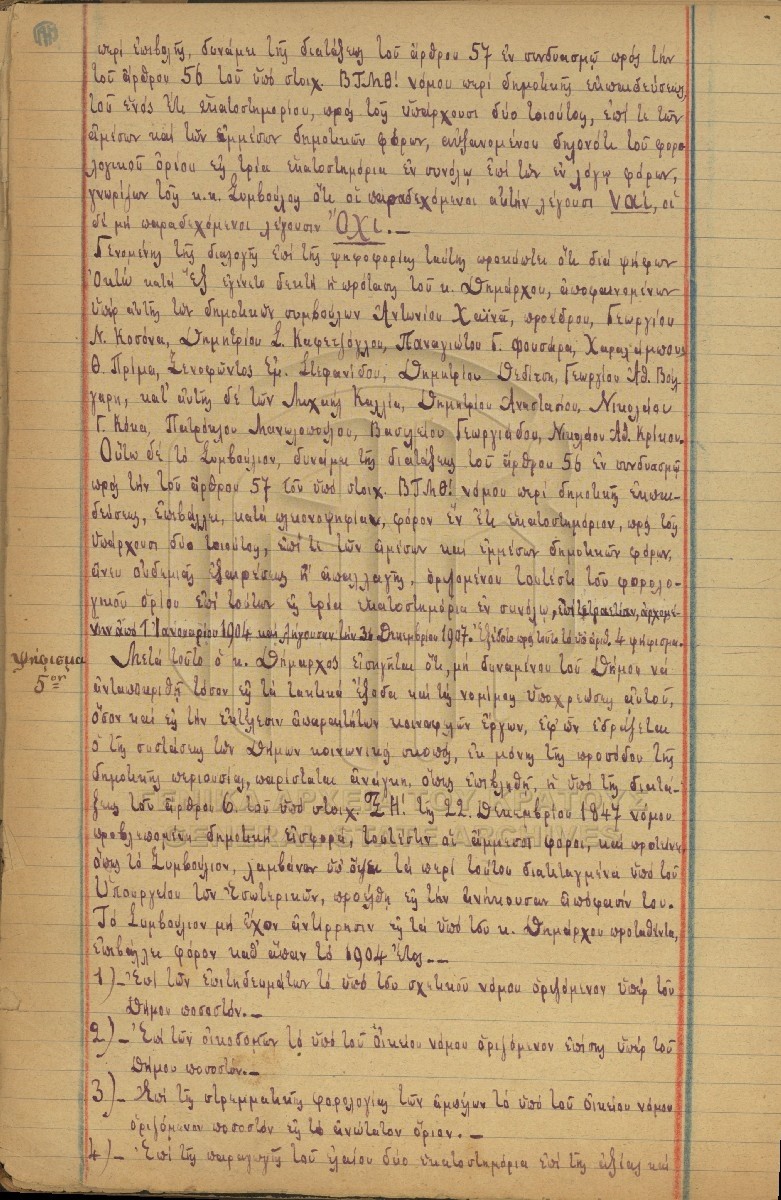 περί ἐπιβολῆς, δυνάμει τῆς διατάξεως τοῦ ἄρθρου 57 ἐν συνδυασμῷ πρός τήν
τοῦ ἄρθρου 56 τοῦ ὑπό στοιχ. ΒΤΜΘ! νόμου περί δημοτικῆς ἐκπαιδεύσεως,
τοῦ ἑνός ἔτι ἑκατοστημορίου, πρός τοῖς ὑπάρχουσι δύο τοιούτοις, ἐπί τε τῶν
ἀμέσων καί τῶν ἐμμέσων δημοτικῶν φόρων, αὐξανομένου δηλονότι τοῦ φορο-
λογικοῦ ὁρίου εἰς τρία ἑκατοστημόρια ἐν συνόλῳ ἐπί τῶν ἐν λόγῳ φόρων,
γνωρίζων τοῖς κ.κ. Συμβούλοις ὅτι οἱ παραδεχόμενοι αὐτήν λέγουσι ναί, οἱ
δέ μή παραδεχόμενοι λέγουσιν "ΟΧΙ. —
Γενομένης τῆς διαλογῆς ἐπί τῆς ψηφοφορίας ταύτης προκύπτει ὅτι διά ψήφων
ὀκτώ κατά ἕξ ἐγένετο δεκτή ἡ πρότασις τοῦ κ. Δημάρχου, ἀποφαινομένων
ὑπέρ αὐτῆς τῶν δημοτικῶν συμβούλων Ἀντωνίου Χαϊνᾶ, προέδρου, Γεωργίου
Ν. Κοσόνα, Δημητρίου Σ. Καφετζόγλου, Παναγιώτου Γ. Φουσάρα, Χαραλάμπους
Θ. Πρίμα, Ξενοφῶντος Ἐμ. Στεφανίδου, Δημητρίου Δεδίτση, Γεωργίου Ἀθ. Βούλ-
γαρη, κατ' αὐτῆς δέ τῶν Μιχαήλ Καλλία, Δημητρίου Ἀναστασίου, Νικολάου
Γ. Κόκα, Πατρόκλου Μανωλοπούλου, Βασιλείου Γεωργιάδου, Νικολάου Ἀθ. Κρίκου.
Οὕτω δέ τό Συμβούλιον, δυνάμει τῆς διατάξεως τοῦ ἄρθρου 56 ἐν συνδυασμῷ
πρός τήν τοῦ ἄρθρου 57 τοῦ ὑπό στοιχ. ΒΤΜΘ! νόμου περί δημοτικῆς ἐκπαι-
δεύσεως, ἐπιβάλλει, κατά πλειονοψηφίαν, φόρον ἕν ἔτι ἑκατοστημόριον, πρός τοῖς
ὑπάρχουσι δύο τοιούτοις, ἐπί τε τῶν ἀμέσων καί ἐμμέσων δημοτικῶν φόρων,
ἄνευ οὐδεμιᾶς ἐξαιρέσεως ἤ ἀπαλλαγῆς, ὁριζομένου τουτέστι τοῦ φορολο-
γικοῦ ὁρίου ἐπί τούτων εἰς τρία ἑκατοστημόρια ἐν συνόλῳ, ἐπί τετραετίαν, ἀρχομέ-
νην ἀπό 1 Ἰανουαρίου 1904 καί λήγουσαν τήν 31 Δεκεμβρίου 1907. Ἐξεδόθη πρός τοῦτο τό ὑπ' ἀριθ. 4 ψήφισμα.
Ψήφισμα
5ον
Μετά τοῦτο ὁ κ. Δήμαρχος εἰσηγεῖται ὅτι, μή δυναμένου τοῦ Δήμου νά
ἀνταποκριθῇ τόσον εἰς τά τακτικά ἔξοδα καί τάς νομίμους ὑποχρεώσεις αὐτοῦ,
ὅσον καί εἰς τήν ἐκτέλεσιν ἀπαραιτήτων κοινωφελῶν ἔργων, ἐφ' ὧν ἑδράζεται
ὁ τῆς συστάσεως τῶν Δήμων κοινωνικός σκοπός, ἐκ μόνης τῆς προσόδου τῆς
δημοτικῆς περιουσίας, παρίσταται ἀνάγκη, ὅπως ἐπιβληθῇ, ἡ ὑπό τῆς διατά-
ξεως τοῦ ἄρθρου 6 τοῦ ὑπό στοιχ. ΟΖ! τῆς 22 Δεκεμβρίου 1847 νόμου
προβλεπομένη δημοτική εἰσφορά, τουτέστιν οἱ ἄμμεσοι φόροι, καί προτείνει,
ὅπως τό Συμβούλιον, λαμβάνον ὑπ' ὄψει τά περί τούτου διατεταγμένα ὑπό τοῦ
Ὑπουργείου τῶν Ἐσωτερικῶν, προέλθῃ εἰς τήν ἀνήκουσαν ἀπόφασίν του. —
Τό Συμβούλιον μή ἔχον ἀντίρρησιν εἰς τά ὑπό τοῦ κ. Δημάρχου προταθέντα,
ἐπιβάλλει φόρον καθ' ἅπαν τό 1904 ἔτος. —
1) — Ἐπί τῶν ἐπιτηδευμάτων τό ὑπό τοῦ σχετικοῦ νόμου ὁριζόμενον ὑπέρ τοῦ
Δήμου ποσοστόν. —
2) — Ἐπί τῶν οἰκοδομῶν τό ὑπό τοῦ οἰκείου νόμου ὁριζόμενον ἐπίσης ὑπέρ τοῦ
Δήμου ποσοστόν. —
3) — Ἐπί τῆς στρεμματικῆς φορολογίας τῶν ἀμπέλων τό ὑπό τοῦ οἰκείου νόμου
ὁριζόμενον ποσοστόν εἰς τό ἀνώτατον ὅριον. —
4) — Ἐπί τῆς παραγωγῆς τοῦ ἐλαίου δύο ἑκατοστημόρια ἐπί τῆς ἀξίας καί
ΓΕΝΙΚΑ ΑΡΧΕΙΑ ΤΟΥ ΚΡΑΤΟΥΣ
GENERAL STATE ARCHIVES